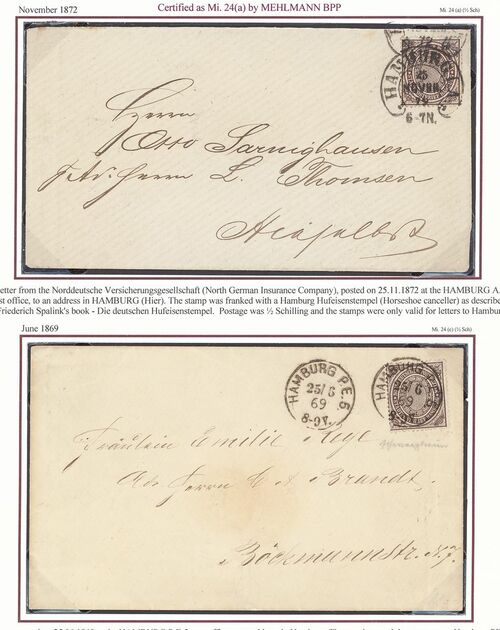 November 1872
Certified as Mi. 24(a) by MEHLMANN BPP
Mi. 24 (a) (½ Sch)
HAMBURG I.A.
25
NOVBR.
72
6-7N.
Herrn
Otto Sarnighausen
p. Adr. Herrn L. Thomsen
Hieselbst
etter from the Norddeutsche Versicherungsgesellschaft (North German Insurance Company), posted on 25.11.1872 at the HAMBURG A.
st office, to an address in HAMBURG (Hier). The stamp was franked with a Hamburg Hufeisenstempel (Horseshoe canceller) as describe
Friederich Spalink's book - Die deutschen Hufeisenstempel. Postage was ½ Schilling and the stamps were only valid for letters to Hambur
June 1869
Mi. 24 (c) (½ Sch)
HAMBURG P.E. 5
25/6
69
8-9V.
HAMBURG P.E. 5
25/6
69
8-9V.
Fräulein Emilie
Adr Herrn C A Brandt.
Böckmannstr. N. 7.